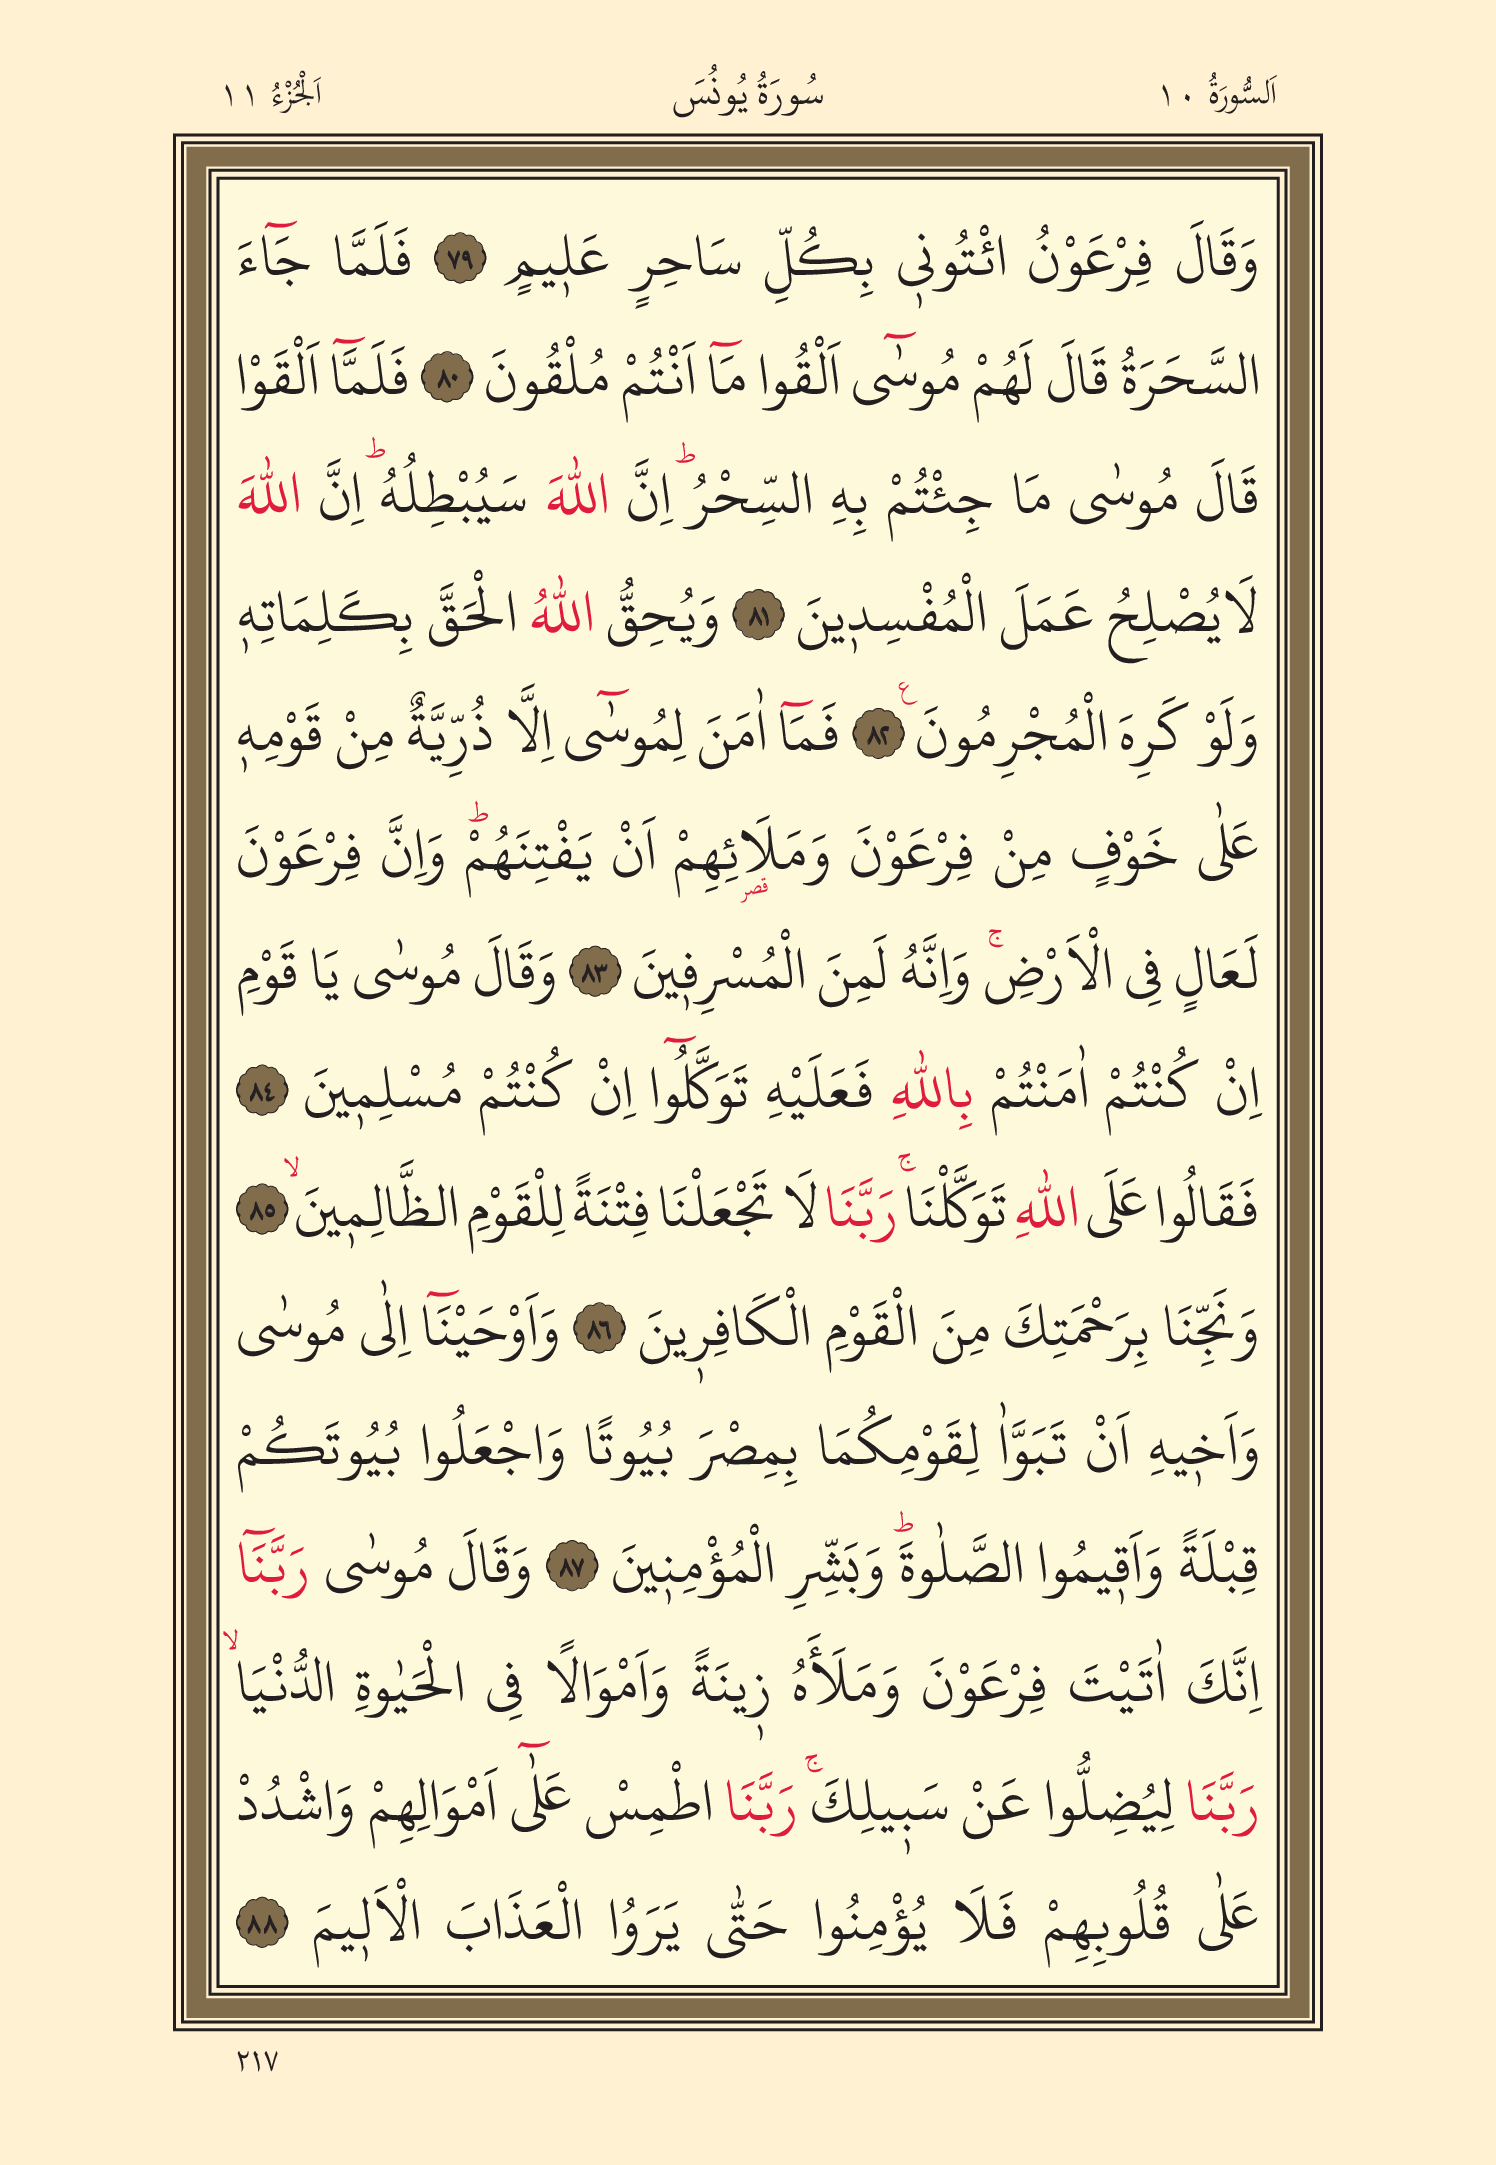 اَلسُّورَةُ ١٠ سُورَةُ يُونُسَ اَلْجُزْءُ ١١
وَقَالَ فِرْعَوْنُ ائْتُونٖي بِكُلِّ سَاحِرٍ عَلٖيمٍ ﴿٧٩﴾ فَلَمَّا جَٓاءَ
السَّحَرَةُ قَالَ لَهُمْ مُوسٰٓى اَلْقُوا مَٓا اَنْتُمْ مُلْقُونَ ﴿٨٠﴾ فَلَمَّٓا اَلْقَوْا
قَالَ مُوسٰى مَا جِئْتُمْ بِهِ السِّحْرُؕ اِنَّ اللّٰهَ سَيُبْطِلُهُؕ اِنَّ اللّٰهَ
لَا يُصْلِحُ عَمَلَ الْمُفْسِدٖينَ ﴿٨١﴾ وَيُحِقُّ اللّٰهُ الْحَقَّ بِكَلِمَاتِهٖ
وَلَوْ كَرِهَ الْمُجْرِمُونَ ع ﴿٨٢﴾ فَمَٓا اٰمَنَ لِمُوسٰٓى اِلَّا ذُرِّيَّةٌ مِنْ قَوْمِهٖ
عَلٰى خَوْفٍ مِنْ فِرْعَوْنَ وَمَلَا۬ئِهِمْ اَنْ يَفْتِنَهُمْؕ وَاِنَّ فِرْعَوْنَ
قصر
لَعَالٍ فِى الْاَرْضِۚ وَاِنَّهُ لَمِنَ الْمُسْرِفٖينَ ﴿٨٣﴾ وَقَالَ مُوسٰى يَا قَوْمِ
اِنْ كُنْتُمْ اٰمَنْتُمْ بِاللّٰهِ فَعَلَيْهِ تَوَكَّلُٓوا اِنْ كُنْتُمْ مُسْلِمٖينَ ﴿٨٤﴾
فَقَالُوا عَلَى اللّٰهِ تَوَكَّلْنَاۚ رَبَّنَا لَا تَجْعَلْنَا فِتْنَةً لِلْقَوْمِ الظَّالِمٖينَۙ ﴿٨٥﴾
وَنَجِّنَا بِرَحْمَتِكَ مِنَ الْقَوْمِ الْكَافِرٖينَ ﴿٨٦﴾ وَاَوْحَيْنَٓا اِلٰى مُوسٰى
وَاَخٖيهِ اَنْ تَبَوَّاٰ لِقَوْمِكُمَا بِمِصْرَ بُيُوتًا وَاجْعَلُوا بُيُوتَكُمْ
قِبْلَةً وَاَقٖيمُوا الصَّلٰوةَؕ وَبَشِّرِ الْمُؤْمِنٖينَ ﴿٨٧﴾ وَقَالَ مُوسٰى رَبَّنَٓا
اِنَّكَ اٰتَيْتَ فِرْعَوْنَ وَمَلَأَهُ زٖينَةً وَاَمْوَالًا فِى الْحَيٰوةِ الدُّنْيَاۙ
رَبَّنَا لِيُضِلُّوا عَنْ سَبٖيلِكَۚ رَبَّنَا اطْمِسْ عَلٰٓى اَمْوَالِهِمْ وَاشْدُدْ
عَلٰى قُلُوبِهِمْ فَلَا يُؤْمِنُوا حَتّٰى يَرَوُا الْعَذَابَ الْاَلٖيمَ ﴿٨٨﴾
٢١٧